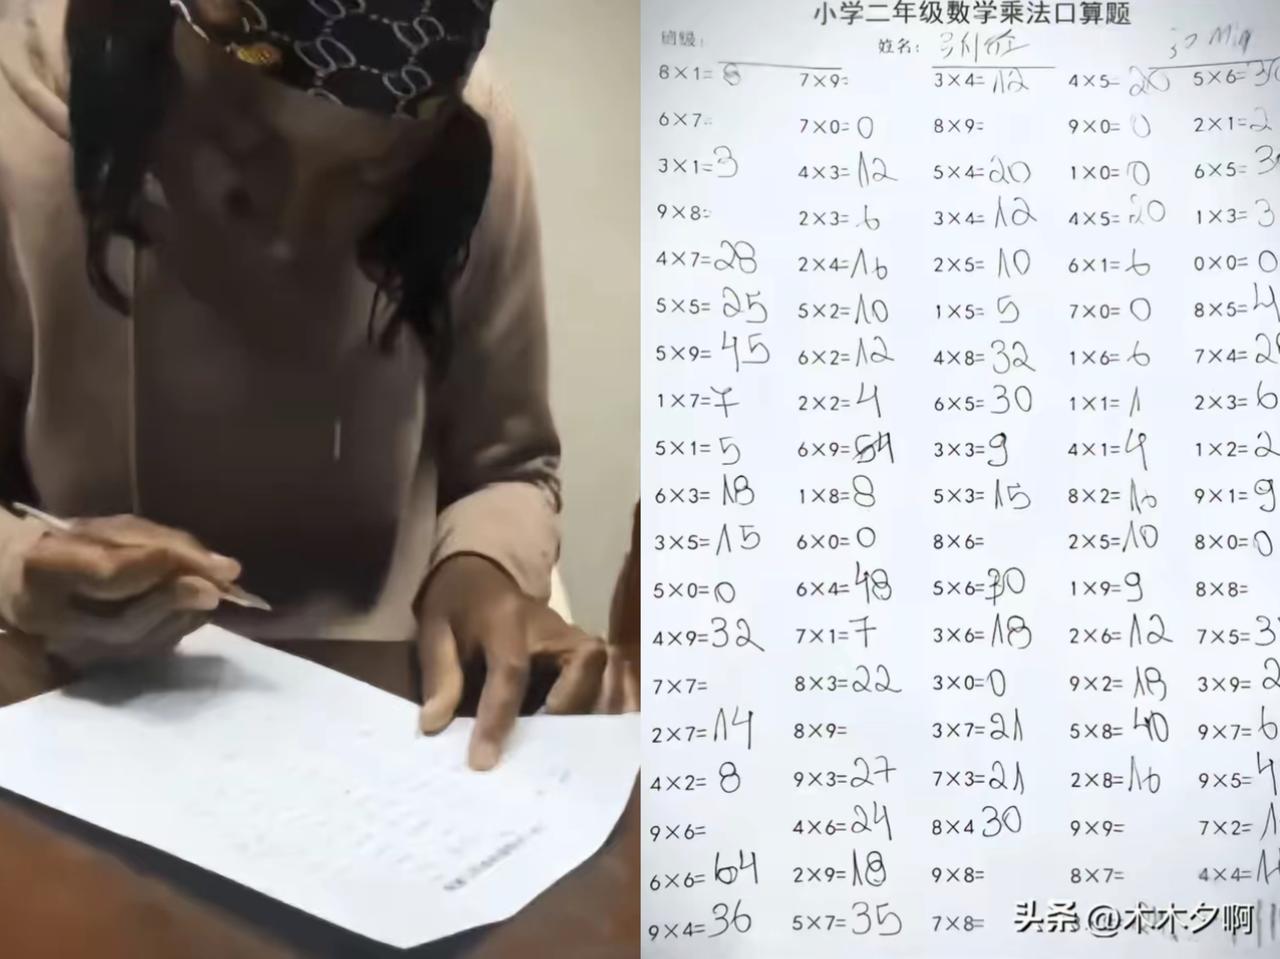 小学二年级数学乘法口算题
姓名:
30 Min
8×1=8 7×9= 3×4=12 4×5=20 5×6=30
6×7= 7×0=0 8×9= 9×0=0 2×1=2
3×1=3 4×3=12 5×4=20 1×0=0 6×5=3
9×8= 2×3=6 3×4=12 4×5=20 1×3=3
4×7=28 2×4=16 2×5=10 6×1=6 0×0=0
5×5=25 5×2=10 1×5=5 7×0=0 8×5=4
5×9=45 6×2=12 4×8=32 1×6=6 7×4=2
1×7=7 2×2=4 6×5=30 1×1=1 2×3=6
5×1=5 6×9=54 3×3=9 4×1=4 1×2=2
6×3=18 1×8=8 5×3=15 8×2=16 9×1=9
3×5=15 6×0=0 8×6= 2×5=10 8×0=0
5×0=0 6×4=48 5×6=30 1×9=9 8×8=
4×9=32 7×1=7 3×6=18 2×6=12 7×5=3
7×7= 8×3=22 3×0=0 9×2=18 3×9=2
2×7=14 8×9= 3×7=21 5×8=40 9×7=6
4×2=8 9×3=27 7×3=21 2×8=16 9×5=4
9×6= 4×6=24 8×4 30 9×9= 7×2=1
6×6=64 2×9=18 9×8= 8×7= 4×4=1
9×4=36 5×7=35 7×8=
头条 @木木夕啊